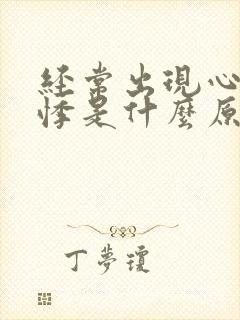 經常出現心
悸是什麼原
丁夢瓊